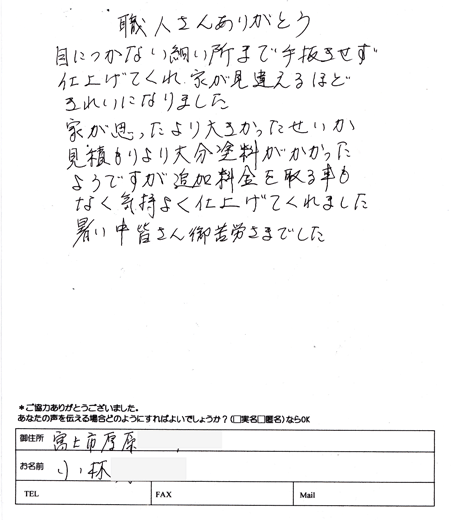 職人さんありがとう
目につかない細い所まで手抜きせず
仕上げてくれ家が見違えるほど
きれいになりました
家が思ったより大きかったせいか
見積もりより大分塗料がかかった
ようですが追加料金を取る事も
なく気持よく仕上げてくれました
暑い中皆さん御苦労さまでした
*ご協力ありがとうございました。
あなたの声を伝える場合どのようにすればよいでしょうか?(□実名□匿名)ならOK
御住所 富士市厚原
お名前 小林
TEL FAX Mail